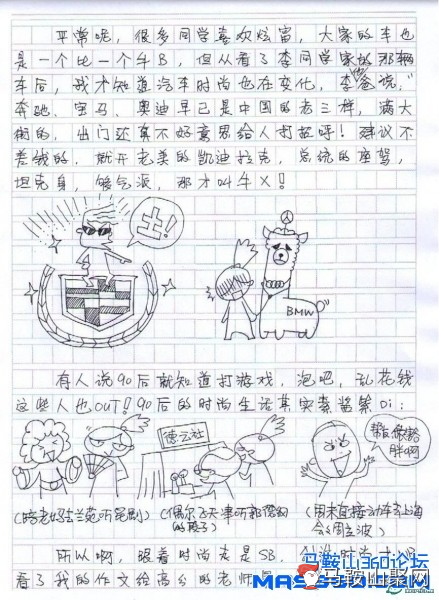 平常呢，很多同学喜欢炫富，大家的车也
是一个比一个牛B，但从看了李同学家的那辆
车后，我才知道汽车时尚也在变化，李爸说，
奔驰、宝马、奥迪早已是中国的老三样，满大
街的，出门还真不好意思给人打招呼！建议不
差钱的，就开老美的凯迪拉克，总统的座驾，
坦克身，够气派，那才叫牛X！
土！
BMW
有人说90后就知道打游戏，泡吧，乱花钱
这些人也OUT！90后的时尚生活其实素酱紫Di：
德云社
帮我做豁
胖啊
(陪老妈去兰苑听昆剧)
(偶尔飞天津听郭德纲
的段子)
(周末直接动车去上海
会会周立波)
所以啊，跟着时尚走是SB，
看了我的作文给高分的老师
马鞍山360论坛
马鞍山聚网
MASS360.COM